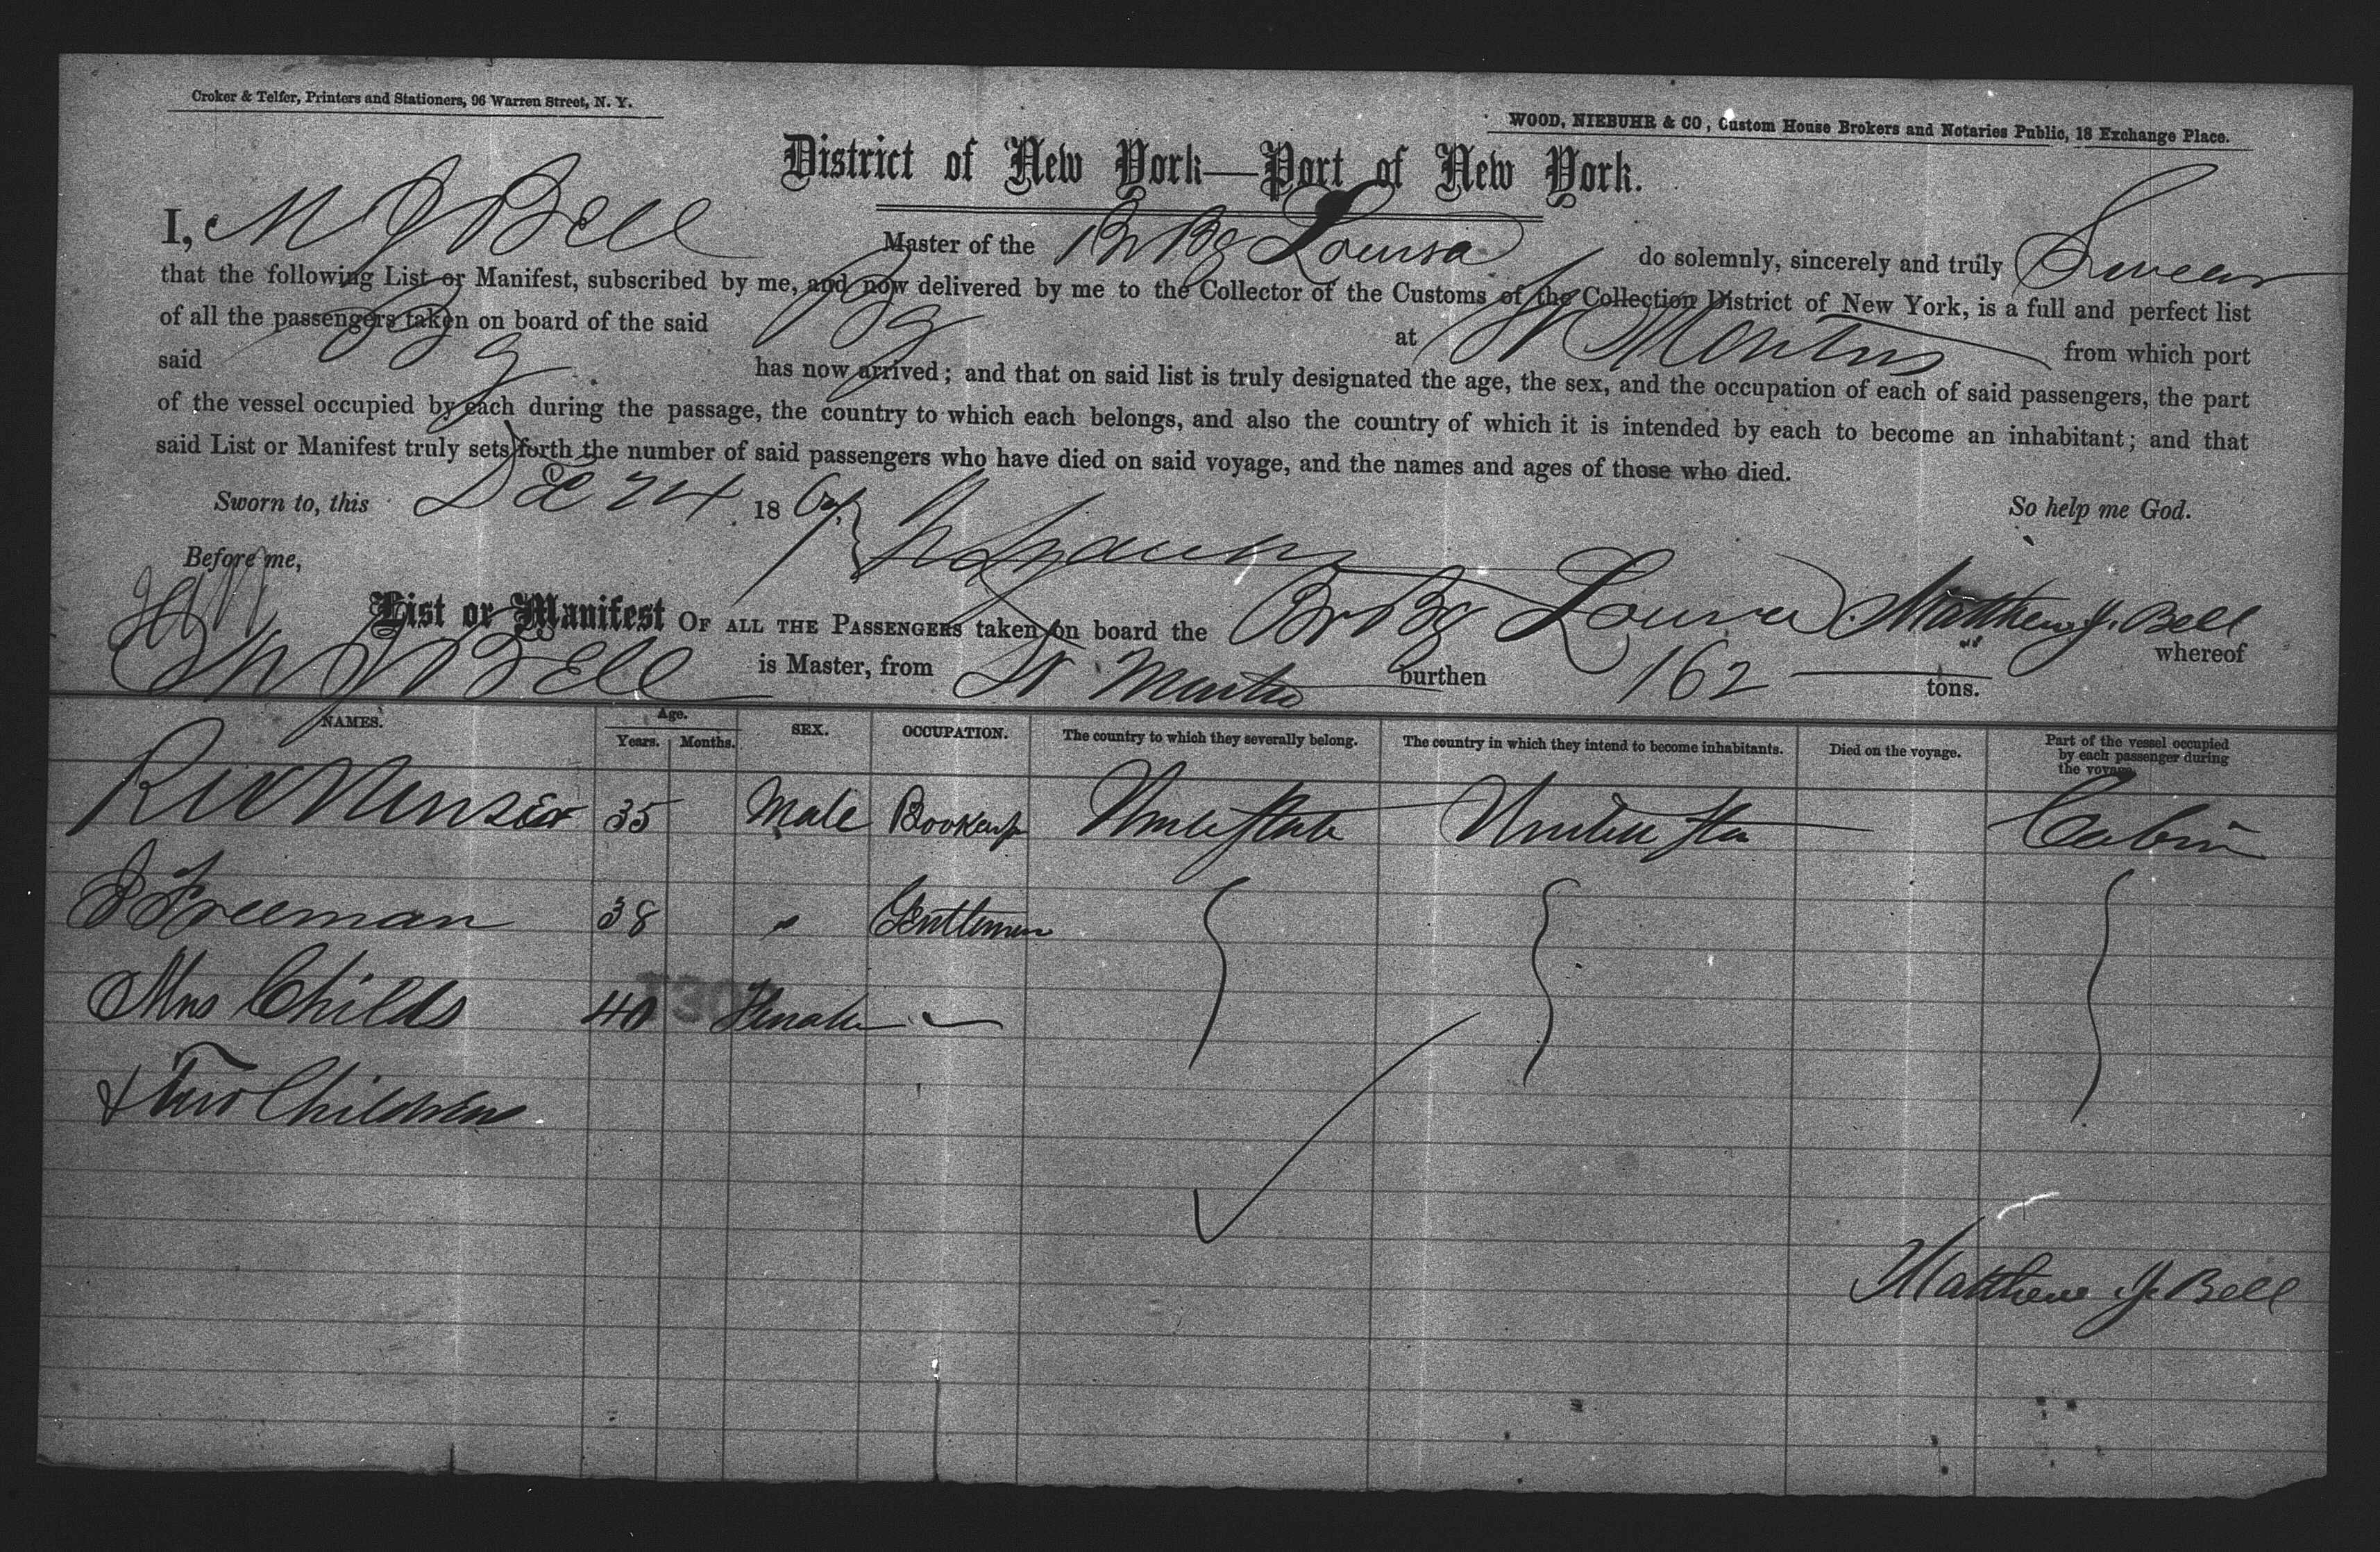 Croker & Telfer, Printers and Stationers, 96 Warren Street, N. Y.
WOOD, NIEBUHR & CO, Custom House Brokers and Notaries Public, 18 Exchange Place.
District of New York—Port of New York.
I, M J Bell Master of the Br Bg Louisa do solemnly, sincerely and truly Swear
that the following List or Manifest, subscribed by me, and now delivered by me to the Collector of the Customs of the Collection District of New York, is a full and perfect list
of all the passengers taken on board of the said Bg at St Martins from which port
said Bg has now arrived; and that on said list is truly designated the age, the sex, and the occupation of each of said passengers, the part
of the vessel occupied by each during the passage, the country to which each belongs, and also the country of which it is intended by each to become an inhabitant; and that
said List or Manifest truly sets forth the number of said passengers who have died on said voyage, and the names and ages of those who died.
Sworn to, this Dec 24 1867 So help me God.
Before me,
Matthew J. Bell
List or Manifest OF ALL THE PASSENGERS taken on board the Br Bg Louisa whereof
M J Bell is Master, from St Martins burthen 162 tons.
NAMES. Age. Years. Months. SEX. OCCUPATION. The country to which they severally belong. The country in which they intend to become inhabitants. Died on the voyage. Part of the vessel occupied by each passenger during the voyage
35 Male Cabin
J Freeman 38 " Gentleman
Mrs Childs 40 Female —
& Two Children
Matthew J. Bell